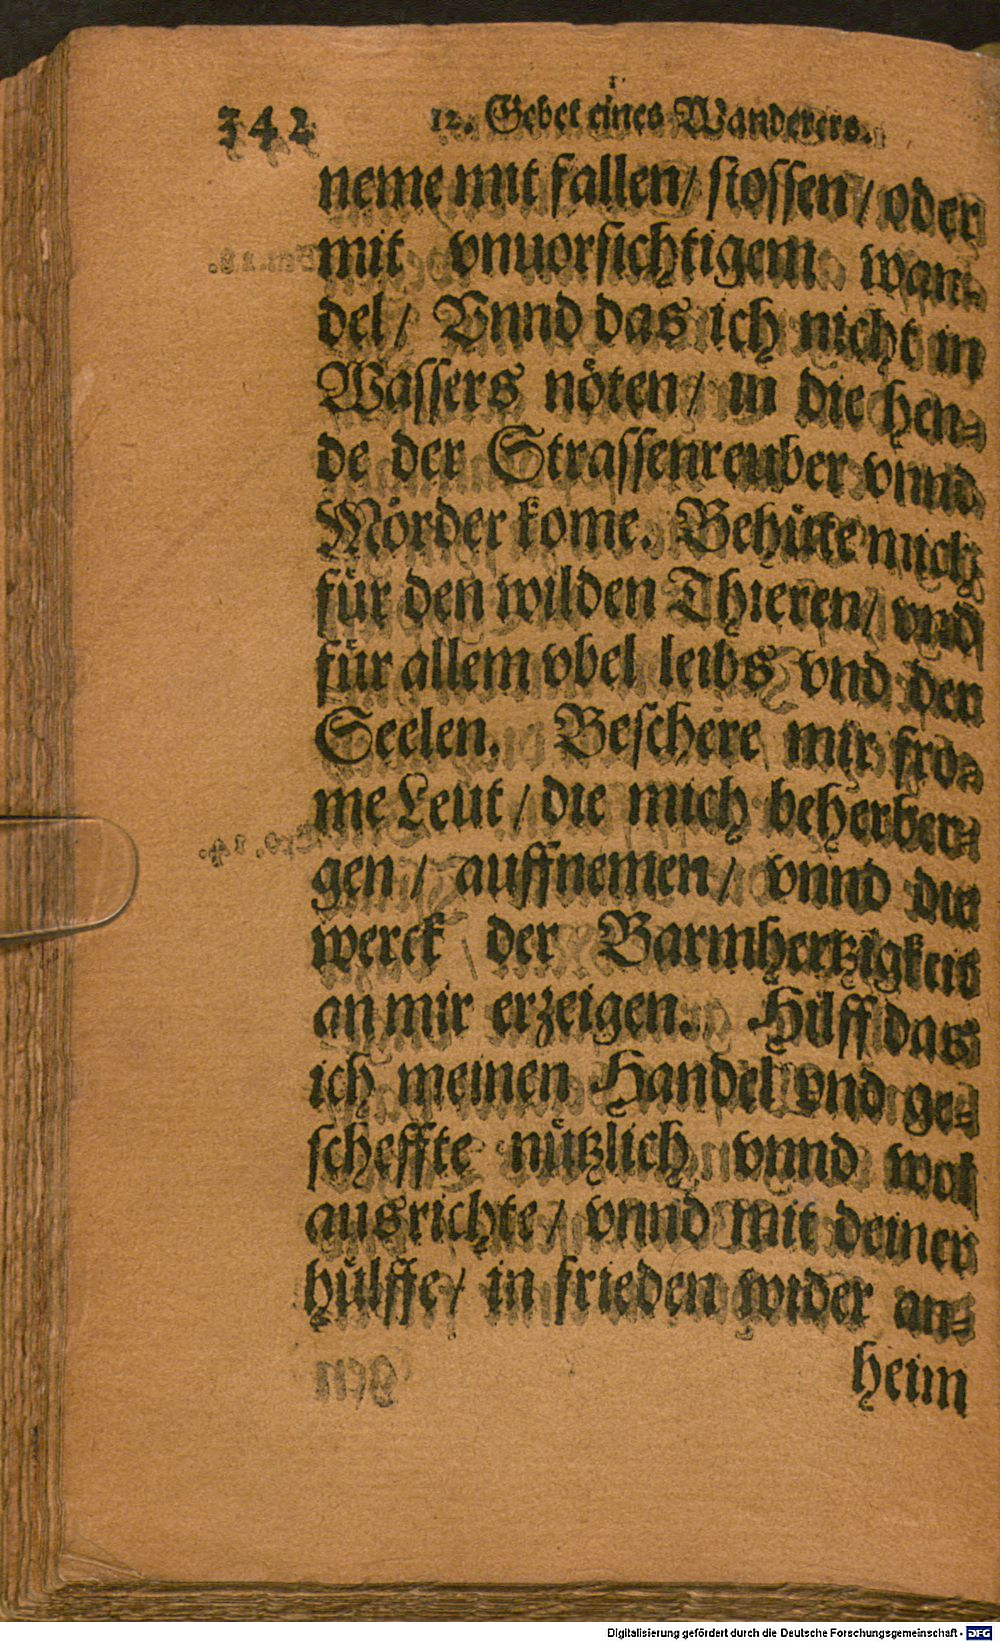 342 12. Gebet eines Wanderers.
neme mit fallen/ stossen/ oder
mit vnuorsichtigem wan-
del/ Vnnd das ich nicht in
Wassers nöten/ in die hen-
de der Strassenreuber vnnd
Mörder kome. Behüte mich
für den wilden Thieren/ vnd
für allem vbel leibs vnd der
Seelen. Beschere mir fro-
me Leut/ die mich beherber-
gen/ auffnemen/ vnnd die
werck der Barmhertzigkeit
an mir erzeigen. Hilff das
ich meinen Handel vnd ge-
scheffte nützlich vnnd wol
ausrichte/ vnnd mit deiner
hülffe/ in frieden wider an-
heim
Digitalisierung gefördert durch die Deutsche Forschungsgemeinschaft - DFG